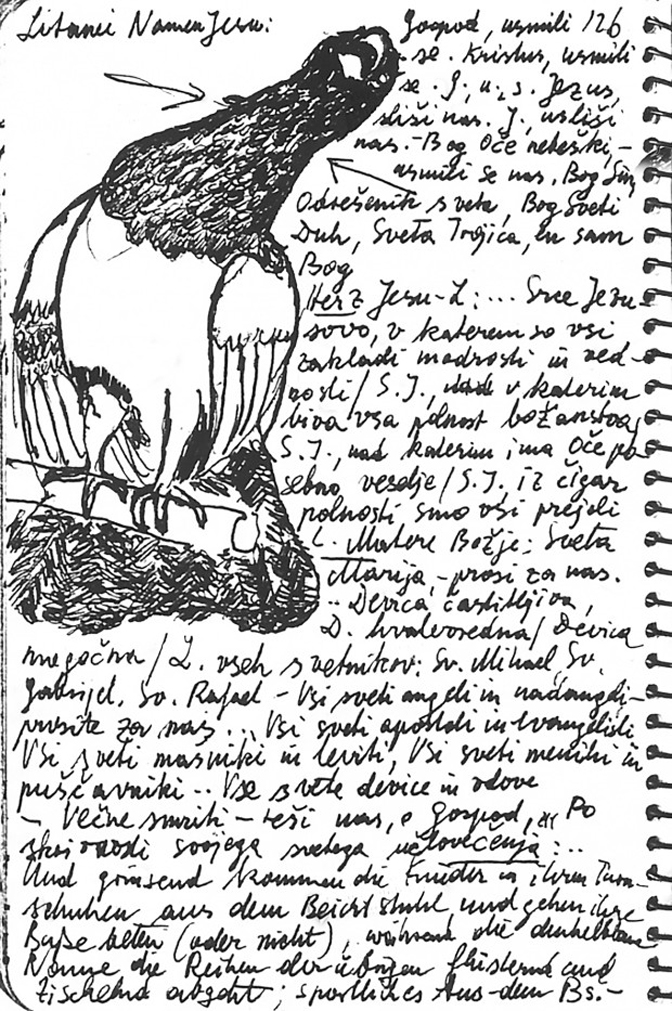 Litanei Namen Jesu:
Gospod, usmili 126
se. Kristus, usmili
se. G., u. s. Jezus,
sliši nas. J., usliši
nas. - Bog Oče nebeški, -
usmili se nas, Bog Sin
Odrešenik sveta, Bog Sveti
Duh, Sveta Trojica, en sam
Bog
Herz Jesu-L: ... Srce Jezu-
sovo, v katerem so vsi
zakladi modrosti in ved-
nosti / S. J., v katerim
biva vsa polnost božanstva,
S. J., nad katerim ima Oče po-
sebno veselje / S. J., iz čigar
polnosti smo vsi prejeli
L. Matere Božje: Sveta
Marija, - prosi za nas.
Devica častitljiva,
D. hvalevredna / Devica
mogočna / L. vseh svetnikov: Sv. Mihael, Sv.
Gabrijel, Sv. Rafael - Vsi sveti angeli in nadangeli -
prosite za nas ... Vsi sveti apostoli in evangelisti
Vsi sveti mašniki in leviti, Vsi sveti menihi in
puščavniki .. Vse svete device in vdove
- Večne smrti - reši nas, o Gospod, ... Po
skrivnosti svojega svetega učlovečenja: ..
Und grinsend kommen die Kinder in ihren Turn-
schuhen aus dem Beichtstuhl und gehen ihre
Buße beten (oder nicht), während die dunkelblaue
Nonne die Reihen der übrigen flüsternd und
zischelnd abgeht; sportliches Aus-dem Bs.-